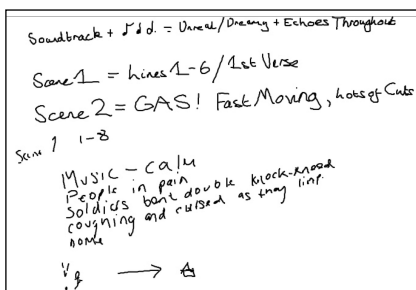 Soundtrack + = Unreal/Dreamy + Echoes Throughout
Scene 1 = Lines 1-6/1st Verse
Scene 2 = GAS! Fast Moving, Lots of Cuts
Scene 1 1-8
Music - calm
People in pain
Soldiers bent double knock-kneed
coughing and cursed as they limp
home